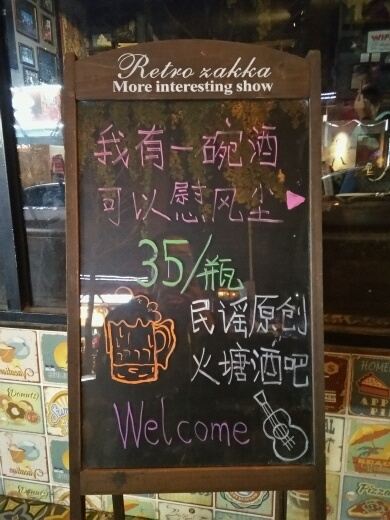 Retro zakka
More interesting show
我有一碗酒
可以慰风尘
35/瓶
民谣原创
火塘酒吧
Welcome